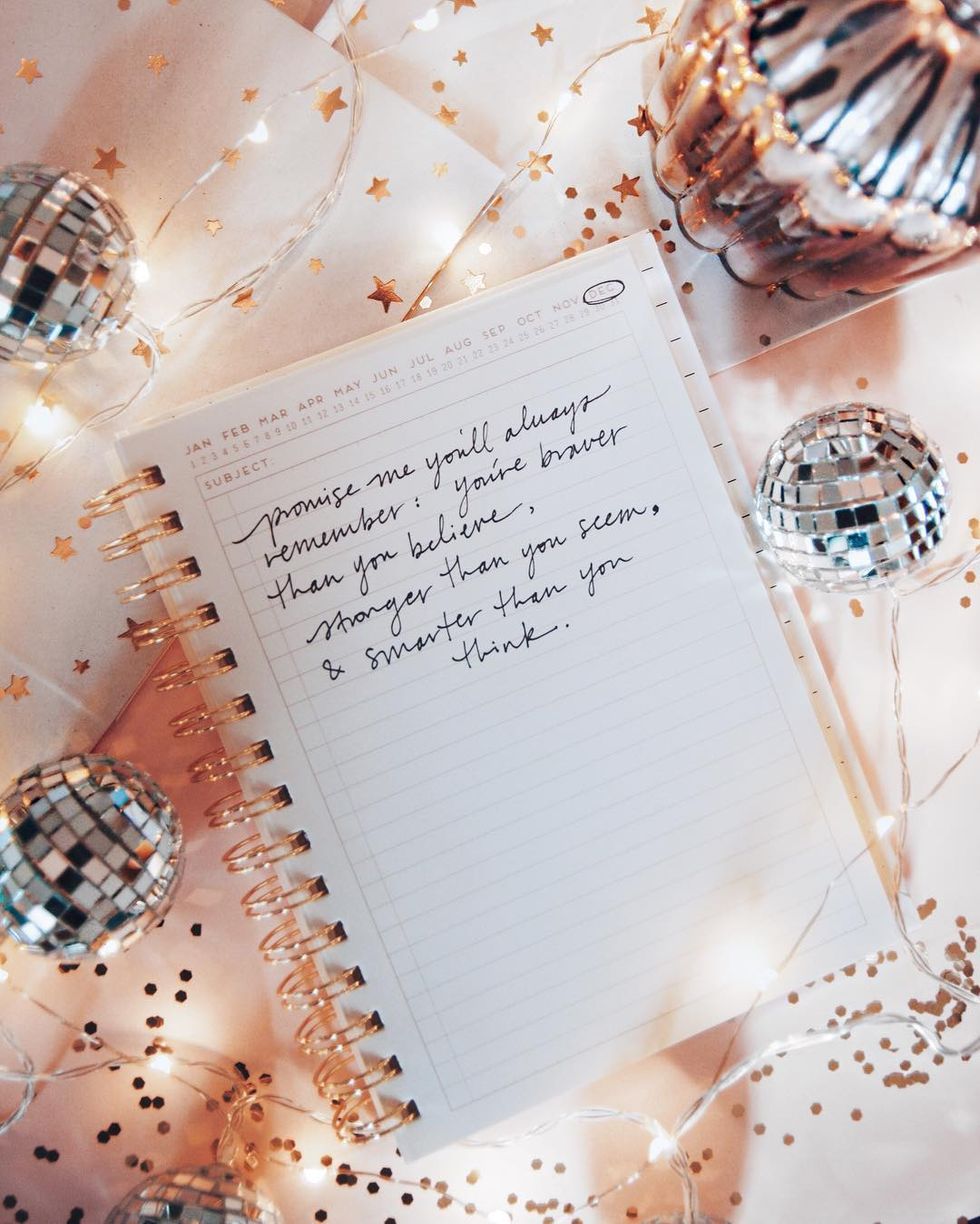 JAN FEB MAR APR MAY JUN JUL AUG SEP OCT NOV DEC
1 2 3 4 5 6 7 8 9 10 11 12 13 14 15 16 17 18 19 20 21 22 23 24 25 26 27 28 29 30 31
SUBJECT:
promise me you'll always
remember: you're braver
than you believe,
stronger than you seem,
& smarter than you
think.